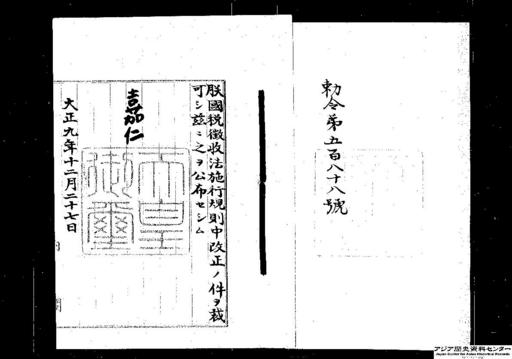 勅令第五百八十八號
朕國税徴收法施行規則中改正ノ件ヲ裁
可シ茲ニ之ヲ公布セシム
嘉仁
天皇
御璽
大正九年十二月二十七日
アジア歴史資料センター
Japan Center for Asian Historical Records